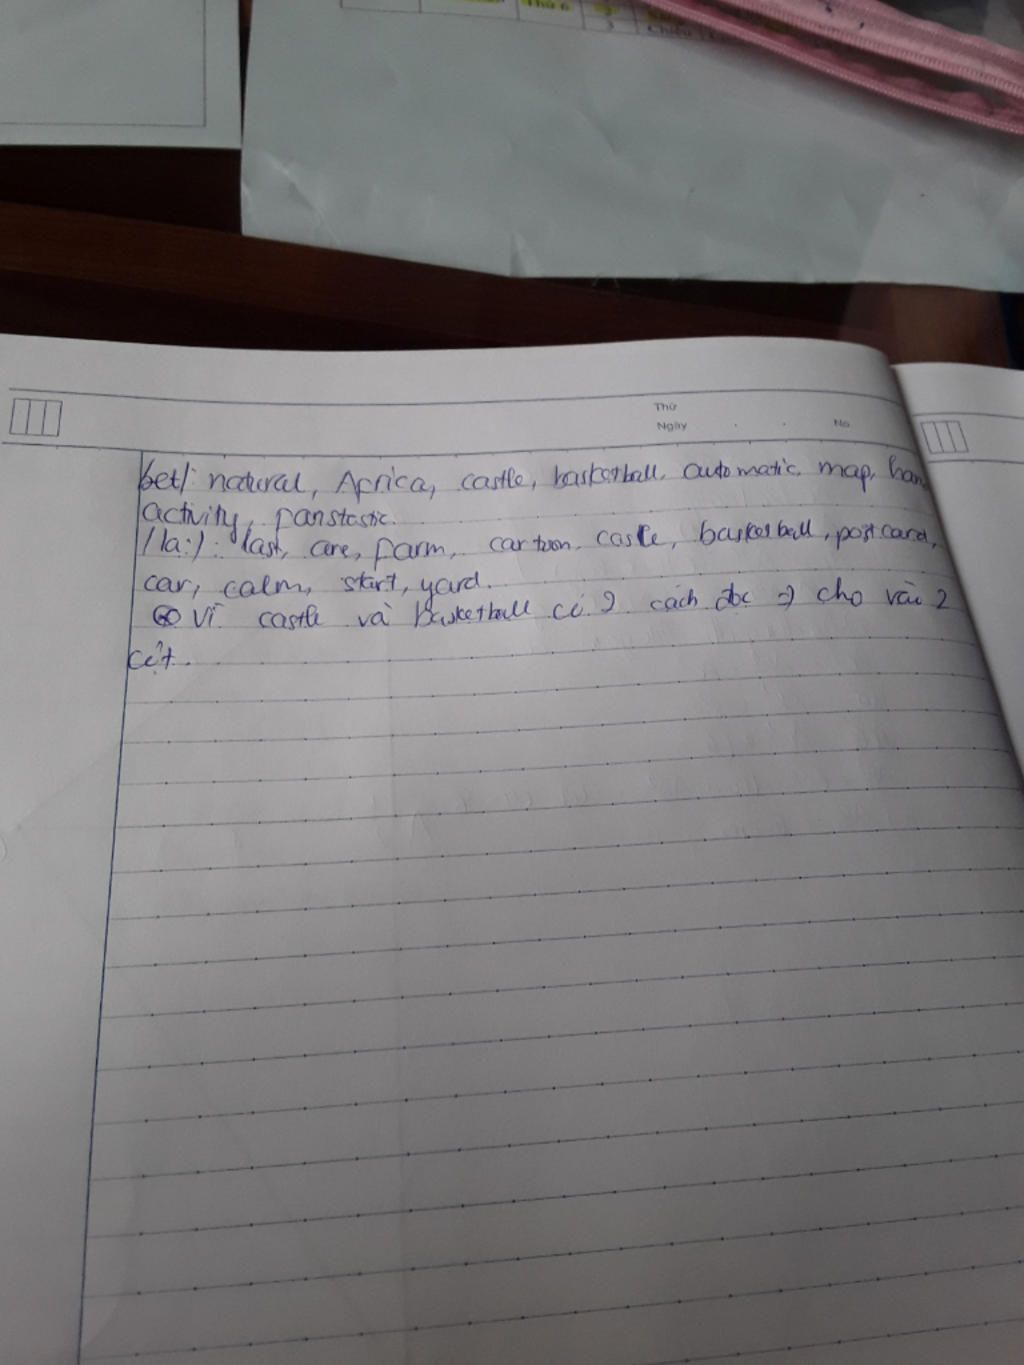 Thứ 6
3
Chiều
Thứ
Ngày
No
/æ/: natural, Aprica, castle, basketball, automatic, map, han
activity, panstastic.
/ɑ:/: last, are, parm, cartoon, castle, basketball, postcard,
car, calm, start, yard.
Vì castle và basketball có 2 cách đọc => cho vào 2
cột.